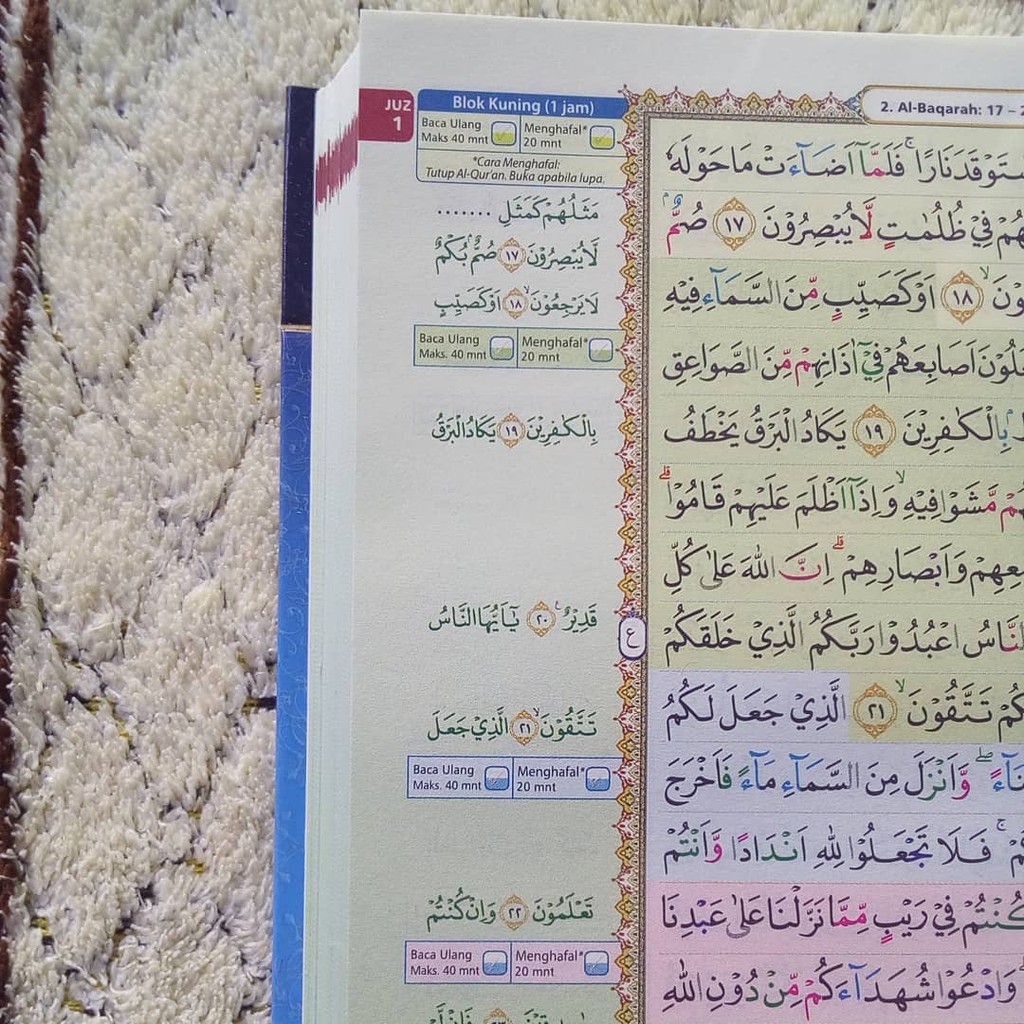 JUZ
1
Blok Kuning (1 jam)
Baca Ulang
Maks 40 mnt
Menghafal*
20 mnt
*Cara Menghafal:
Tutup Al-Qur'an. Buka apabila lupa.
مَثَلُهُمْ كَمَثَلِ .......
لَّا يُبْصِرُوْنَ ١٧ صُمٌّۢ بُكْمٌ
لَا يَرْجِعُوْنَۙ ١٨ اَوْ كَصَيِّبٍ
Baca Ulang
Maks. 40 mnt
Menghafal*
20 mnt
بِالْكٰفِرِيْنَ ١٩ يَكَادُ الْبَرْقُ
قَدِيْرٌ ࣖ ٢٠ يٰٓاَيُّهَا النَّاسُ
تَتَّقُوْنَۙ ٢١ الَّذِيْ جَعَلَ
Baca Ulang
Maks. 40 mnt
Menghafal*
20 mnt
تَعْلَمُوْنَ ٢٢ وَاِنْ كُنْتُمْ
Baca Ulang
Maks. 40 mnt
Menghafal*
20 mnt
2. Al-Baqarah: 17 –
نَارًاۚ فَلَمَّآ اَضَاۤءَتْ مَا حَوْلَهٗ
فِيْ ظُلُمٰتٍ لَّا يُبْصِرُوْنَ ١٧ صُمٌّۢ
١٨ اَوْ كَصَيِّبٍ مِّنَ السَّمَاۤءِ فِيْهِ
اَصَابِعَهُمْ فِيْٓ اٰذَانِهِمْ مِّنَ الصَّوَاعِقِ
بِالْكٰفِرِيْنَ ١٩ يَكَادُ الْبَرْقُ يَخْطَفُ
مَّشَوْا فِيْهِۙ وَاِذَآ اَظْلَمَ عَلَيْهِمْ قَامُوْاۗ
وَاَبْصَارِهِمْۗ اِنَّ اللّٰهَ عَلٰى كُلِّ
ع
النَّاسُ اعْبُدُوْا رَبَّكُمُ الَّذِيْ خَلَقَكُمْ
تَتَّقُوْنَۙ ٢١ الَّذِيْ جَعَلَ لَكُمُ
وَّاَنْزَلَ مِنَ السَّمَاۤءِ مَاۤءً فَاَخْرَجَ
فَلَا تَجْعَلُوْا لِلّٰهِ اَنْدَادًا وَّاَنْتُمْ
كُنْتُمْ فِيْ رَيْبٍ مِّمَّا نَزَّلْنَا عَلٰى عَبْدِنَا
وَادْعُوْا شُهَدَاۤءَكُمْ مِّنْ دُوْنِ اللّٰهِ